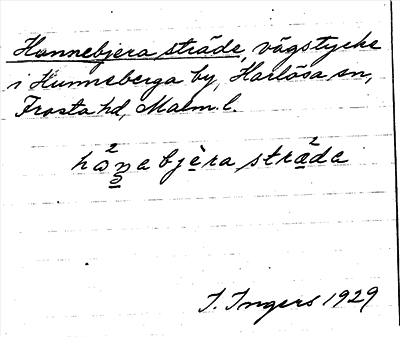 Honnebjera sträde, vägstycke
i Hunneberga by, Harlösa sn,
Frosta hd, Malm. l.
hɔ²n̥abjèra strä²da
I. Ingers 1929